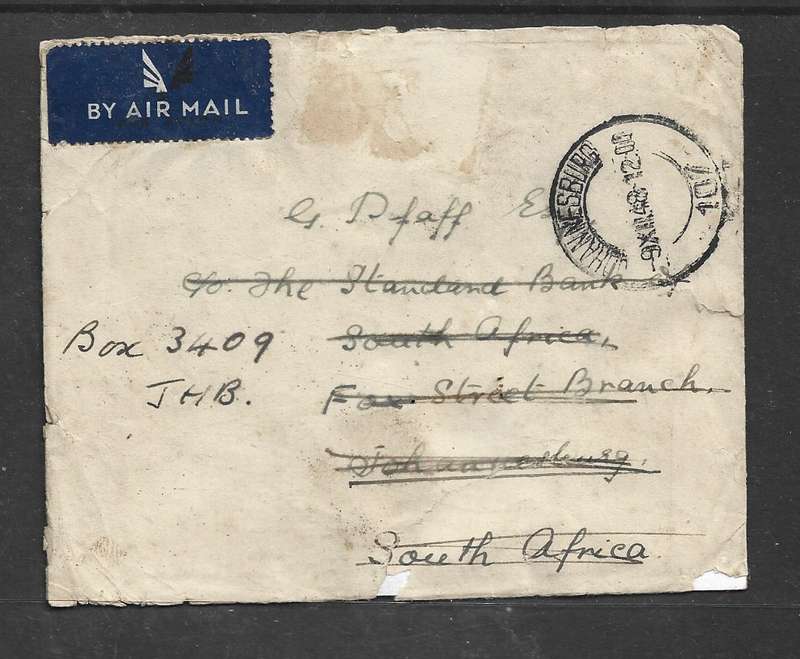 BY AIR MAIL
JOHANNESBURG
-9 XII 48-12 00
10
G. Pfaff Es
c/o. The Standard Bank of
South Africa,
Fox Street Branch,
Johannesburg,
South Africa
Box 3409
JHB.